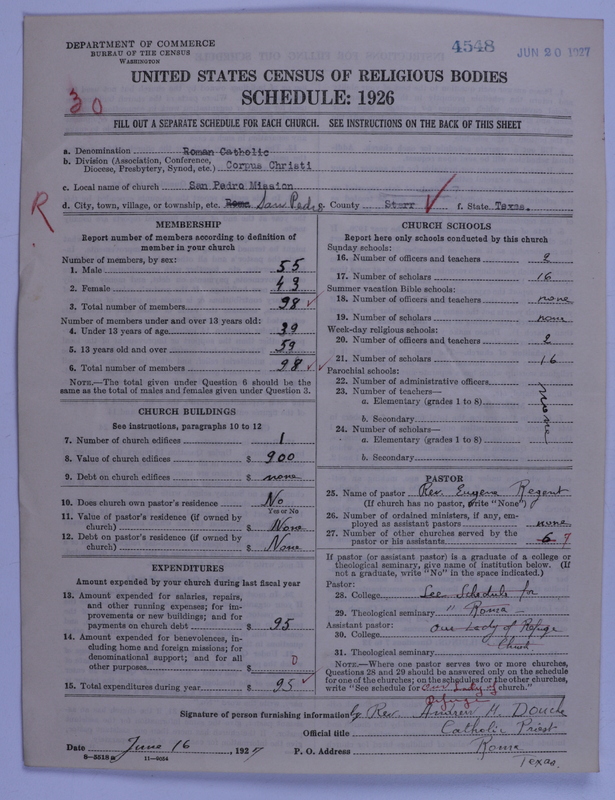 DEPARTMENT OF COMMERCE
BUREAU OF THE CENSUS
WASHINGTON
4548
JUN 20 1927
UNITED STATES CENSUS OF RELIGIOUS BODIES
SCHEDULE: 1926
30
FILL OUT A SEPARATE SCHEDULE FOR EACH CHURCH. SEE INSTRUCTIONS ON THE BACK OF THIS SHEET
a. Denomination Roman Catholic
b. Division (Association, Conference, Diocese, Presbytery, Synod, etc.) Corpus Christi
c. Local name of church San Pedro Mission
d. City, town, village, or township, etc. Roma San Pedro g. County Starr f. State Texas.
R
MEMBERSHIP
Report number of members according to definition of
member in your church
Number of members, by sex:
1. Male 55
2. Female 43
3. Total number of members 98
Number of members under and over 13 years old:
4. Under 13 years of age 39
5. 13 years old and over 59
6. Total number of members 98
NOTE.—The total given under Question 6 should be the
same as the total of males and females given under Question 3.
CHURCH BUILDINGS
See instructions, paragraphs 10 to 12
7. Number of church edifices 1
8. Value of church edifices $ 900
9. Debt on church edifices $ none
10. Does church own pastor's residence No
Yes or No
11. Value of pastor's residence (if owned by
church) $ None
12. Debt on pastor's residence (if owned by
church) $ None
EXPENDITURES
Amount expended by your church during last fiscal year
13. Amount expended for salaries, repairs,
and other running expenses; for im-
provements or new buildings; and for
payments on church debt $ 95
14. Amount expended for benevolences, in-
cluding home and foreign missions; for
denominational support; and for all
other purposes $ 0
15. Total expenditures during year $ 95
CHURCH SCHOOLS
Report here only schools conducted by this church
Sunday schools:
16. Number of officers and teachers 2
17. Number of scholars 16
Summer vacation Bible schools:
18. Number of officers and teachers none
19. Number of scholars none
Week-day religious schools:
20. Number of officers and teachers 2
21. Number of scholars 16
Parochial schools:
22. Number of administrative officers
23. Number of teachers—
a. Elementary (grades 1 to 8)
b. Secondary
none
24. Number of scholars—
a. Elementary (grades 1 to 8)
b. Secondary
PASTOR
25. Name of pastor Rev. Eugene Regent
(If church has no pastor, write "None")
26. Number of ordained ministers, if any, em-
ployed as assistant pastors none
27. Number of other churches served by the
pastor or his assistants 6 7
If pastor (or assistant pastor) is a graduate of a college or
theological seminary, give name of institution below. (If
not a graduate, write "No" in the space indicated.)
Pastor:
28. College See Schedule for
29. Theological seminary " Roma
Assistant pastor:
30. College Our Lady of Refuge
31. Theological seminary Church
NOTE.—Where one pastor serves two or more churches,
Questions 28 and 29 should be answered only on the schedule
for one of the churches; on the schedules for the other churches,
write "See schedule for Our Lady of church."
Refuge
Signature of person furnishing information by Rev. Andrew H. Douche
Official title Catholic Priest
Date June 16, 1927 P. O. Address Roma
Texas.
8—5518a 11—9054